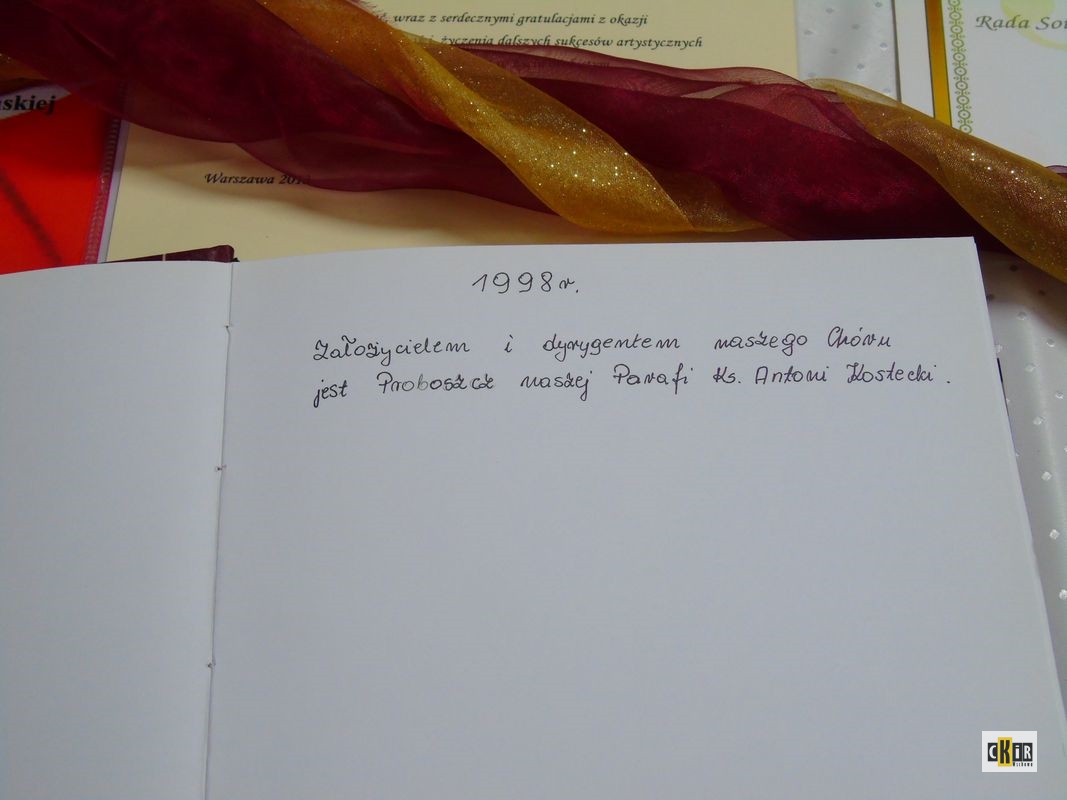 wraz z serdecznymi gratulacjami z okazji
życzenia dalszych sukcesów artystycznych
Rada
skiej
Warszawa
1998 r.
Założycielem i dyrygentem naszego Chóru
jest Proboszcz naszej Parafi Ks. Antoni Kostecki.
CKiR